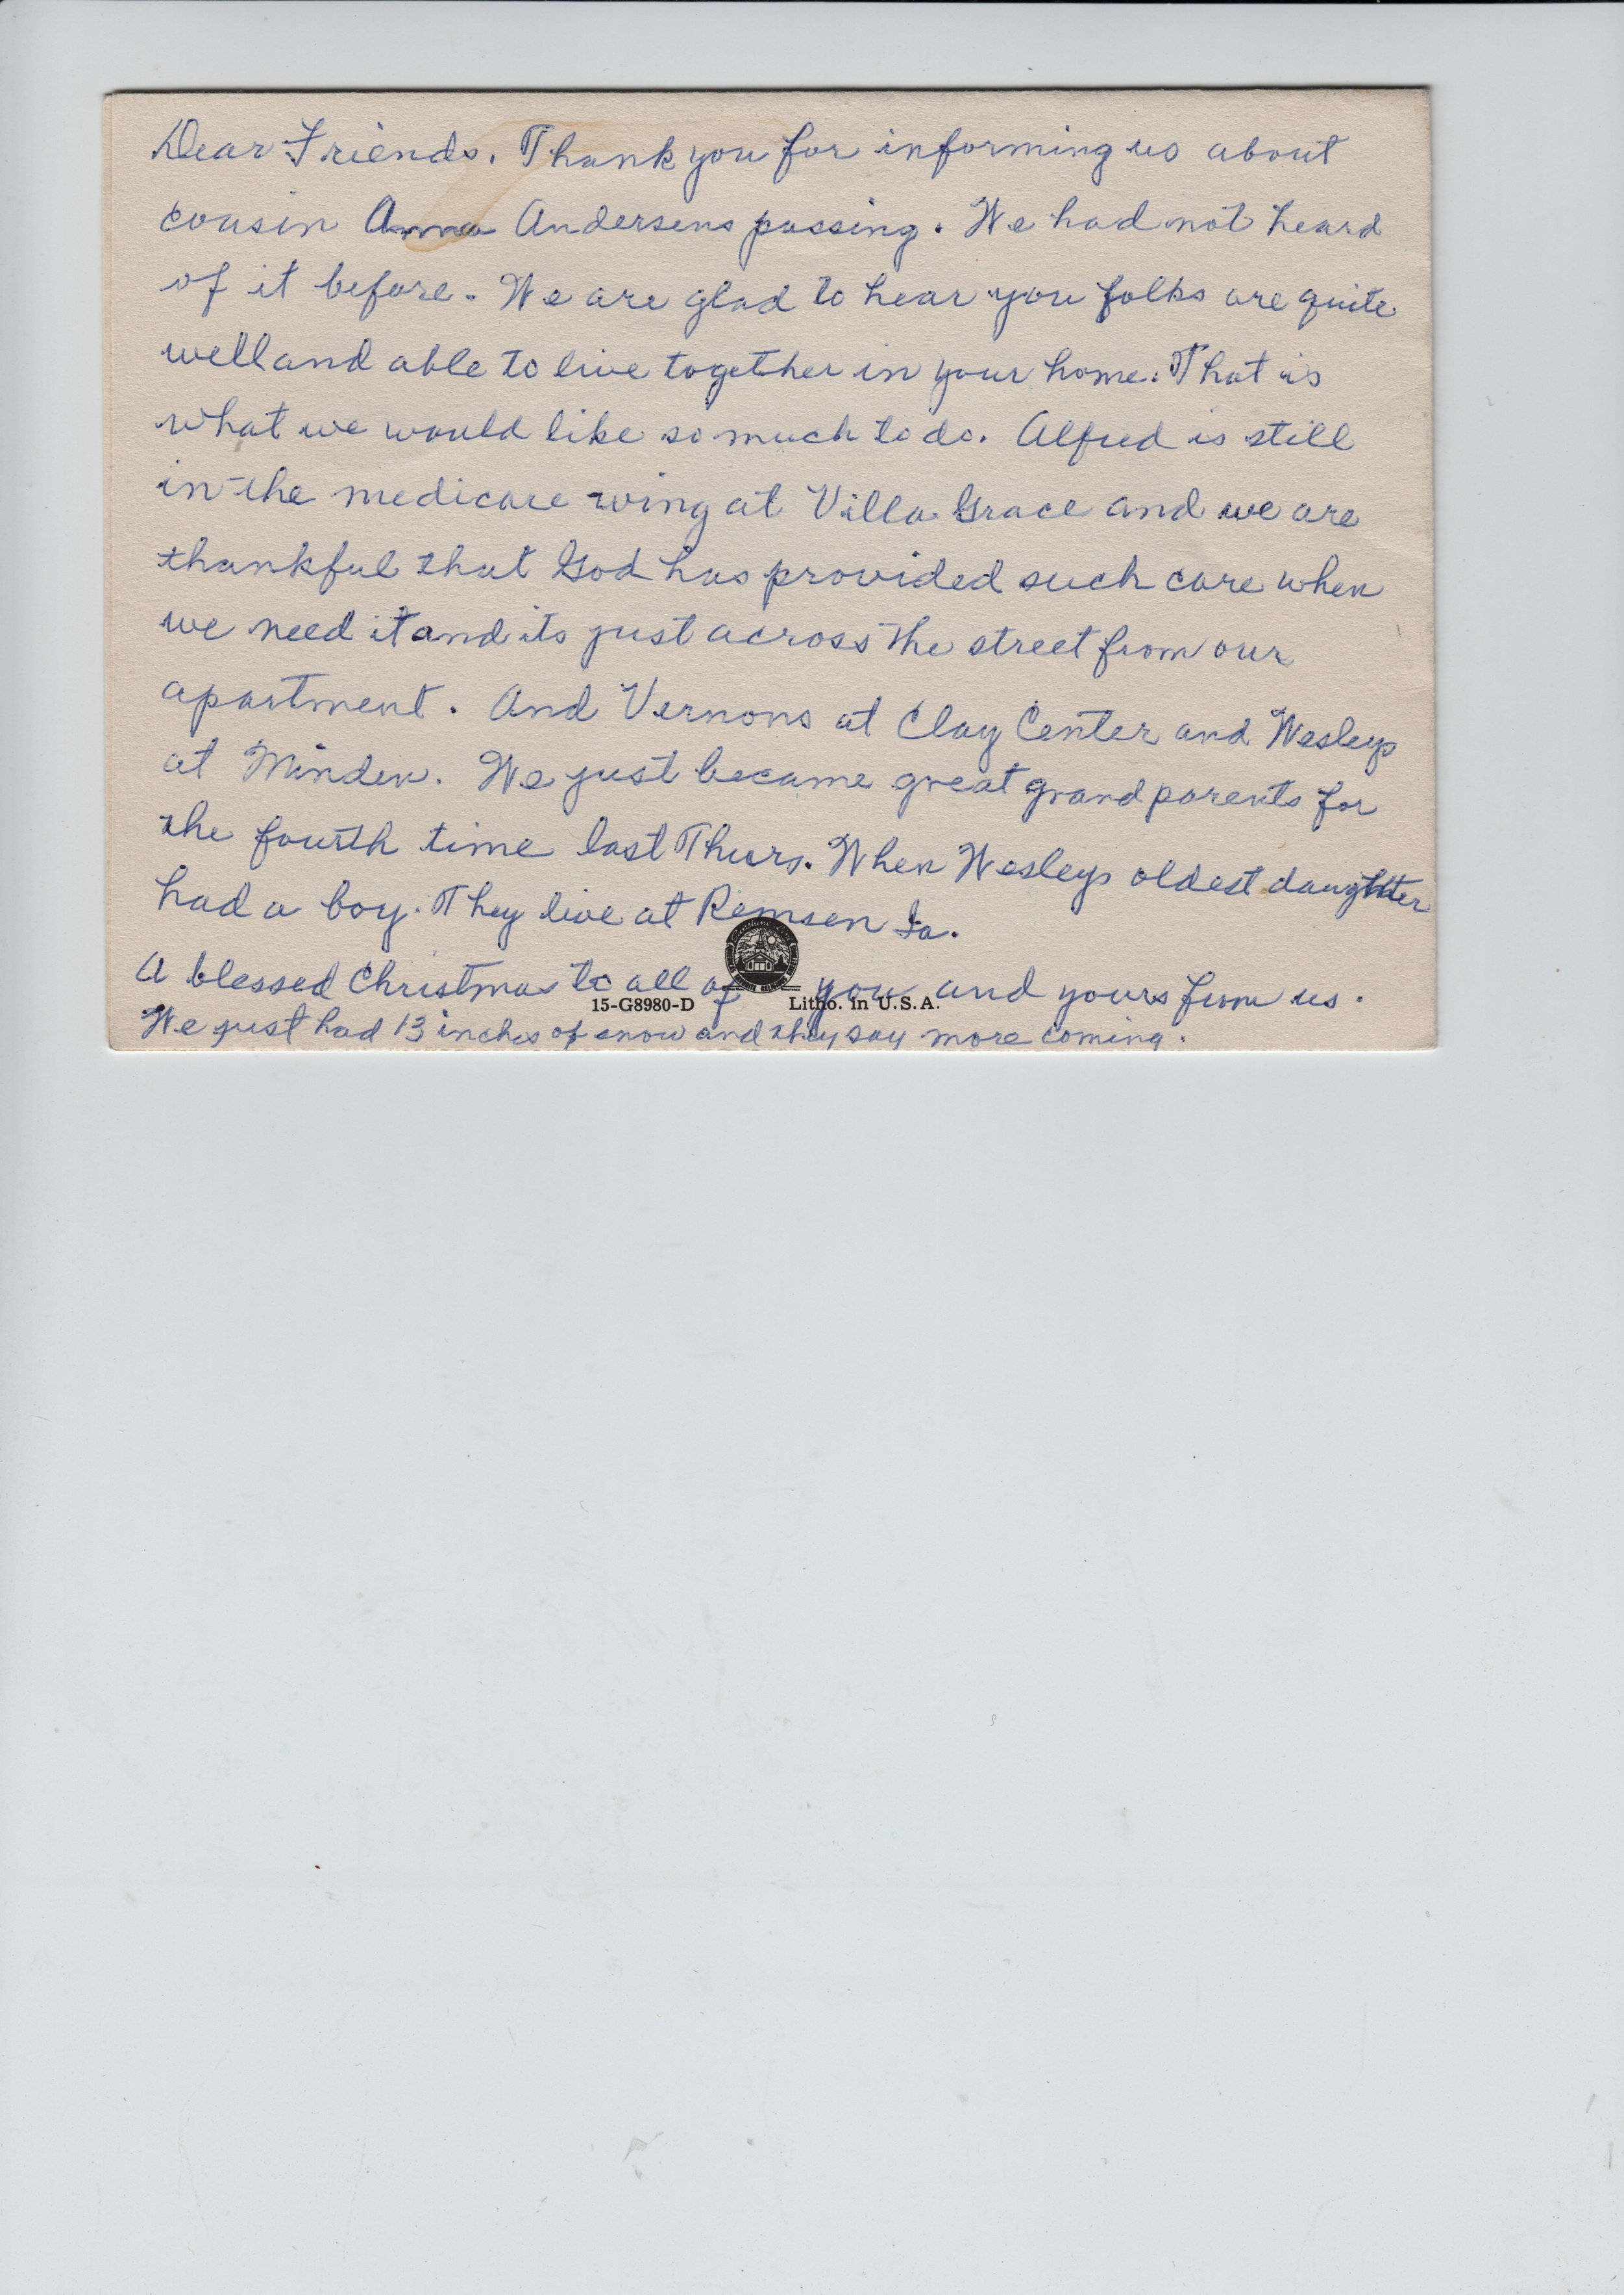 Dear Friends. Thank you for informing us about
cousin Anna Andersens passing. We had not heard
of it before. We are glad to hear you folks are quite
well and able to live together in your home. That is
what we would like so much to do. Alfred is still
in the medicare wing at Villa Grace and we are
thankful that God has provided such care when
we need it and its just across the street from our
apartment. And Vernons at Clay Center and Wesleys
at Minden. We just became great grand parents for
the fourth time last Thurs. When Wesleys oldest daughter
had a boy. They live at Remsen Ia.
A blessed Christmas to all of you and yours from us.
15-G8980-D Litho. in U.S.A.
We just had 13 inches of snow and they say more coming.